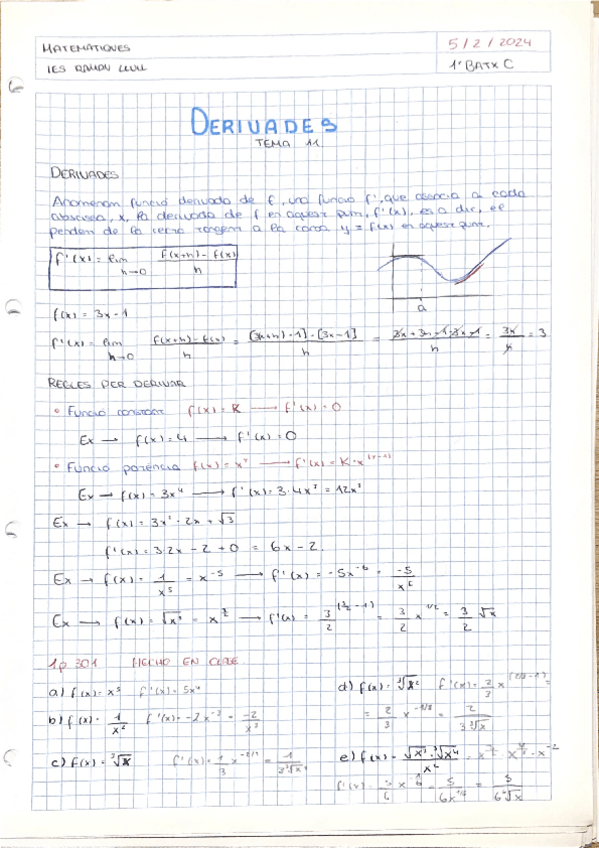 MATEMÀTIQUES 5/2/2024
IES RAMON LLULL 1º BATX C
DERIVADES
TEMA 11
DERIVADES
Anomenam funció derivada de f, una funció f', que associa a cada
abscissa, x, la derivada de f en aquest punt, f'(x), és a dir, el
pendent de la recta tangent a la corba y = f(x) en aquest punt.
f'(x) = lim h→0 f(x+h) - f(x) / h
a
f(x) = 3x - 1
f'(x) = lim h→0 f(x+h) - f(x) / h = [3(x+h) - 1] - [3x - 1] / h = 3x + 3h - 1 - 3x + 1 / h = 3x / h = 3
REGLES PER DERIVAR
• Funció constant f(x) = K → f'(x) = 0
Ex → f(x) = 4 → f'(x) = 0
• Funció potència f(x) = x → f'(x) = K · x
Ex → f(x) = 3x⁴ → f'(x) = 3 · 4x³ = 12x³
Ex → f(x) = 3x² - 2x + √3
f'(x) = 3·2x - 2 + 0 = 6x - 2.
Ex → f(x) = 1/x⁵ = x⁻⁵ → f'(x) = -5x⁻⁶ = -5/x⁶
Ex → f(x) = √x³ = x^3/2 → f'(x) = 3/2 ^(3/2 - 1) = 3/2 x^1/2 = 3/2 √x
1p 301 FICHO EN CLASE
a) f(x) = x⁵ f'(x) = 5x⁴
d) f(x) = ³√x² f'(x) = 2/3 x^(2/3 - 1) =
= 2/3 x^-1/3 = 2 / 3 ³√x
b) f(x) = 1/x² f'(x) = -2x⁻³ = -2/x³
c) f(x) = ³√x f'(x) = 1/3 x^-2/3 = 1 / 3 ³√x²
e) f(x) = √x³ · ³√x⁴ / x² = x · x · x⁻²
f'(x) = 5/6 x = 5 / 6x^1/6 = 5 / 6 ⁶√x